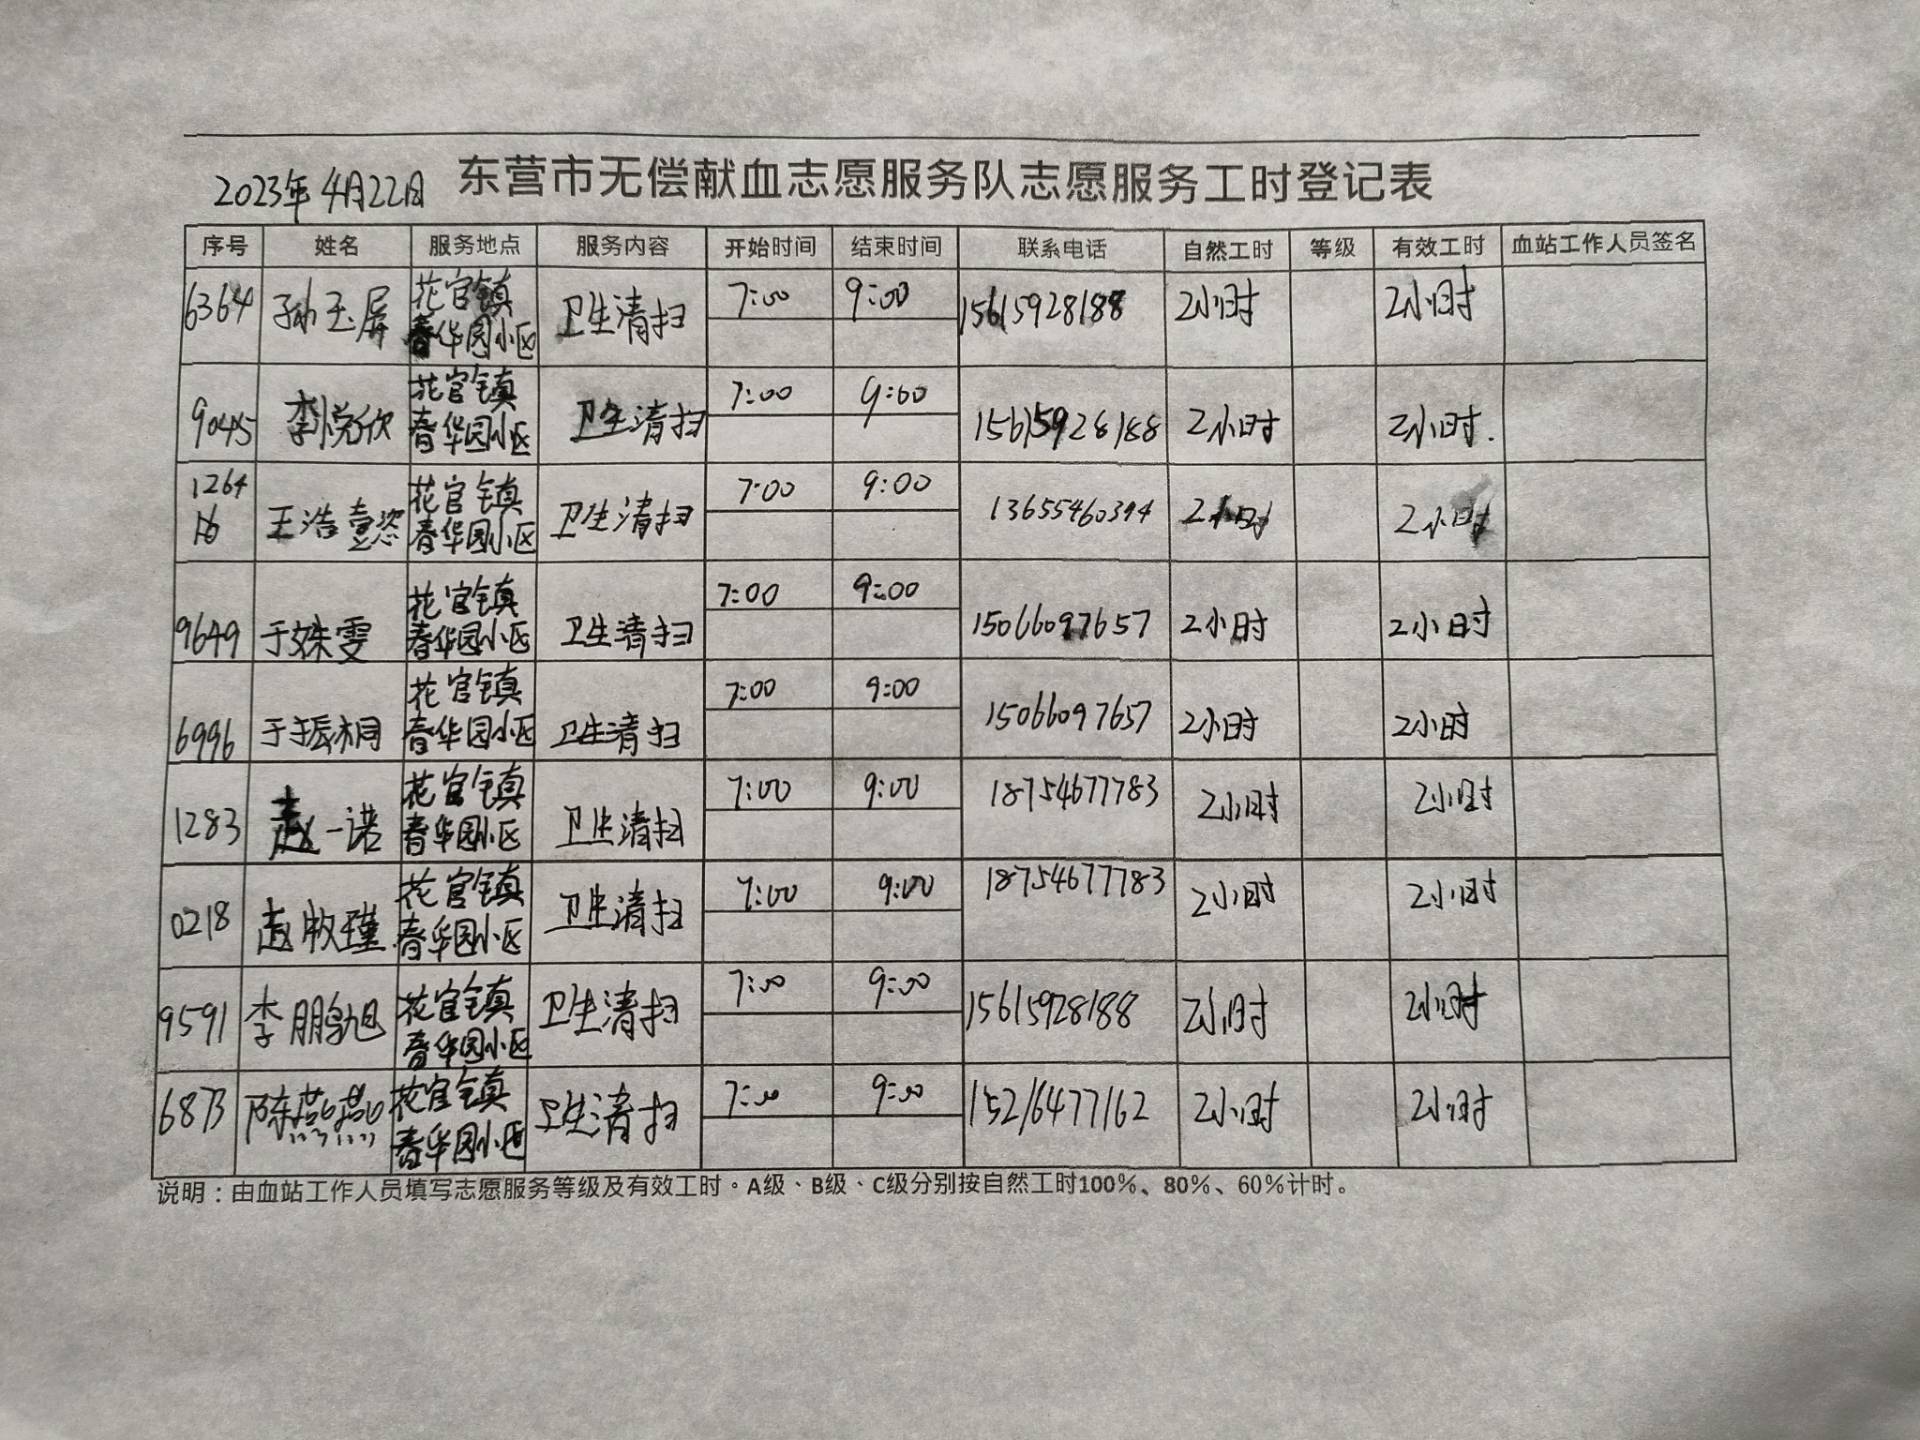 2023年4月22日 东营市无偿献血志愿服务队志愿服务工时登记表
序号 姓名 服务地点 服务内容 开始时间 结束时间 联系电话 自然工时 等级 有效工时 血站工作人员签名
6364 孙玉屏 花官镇 卫生清扫 7:00 9:00 15615928188 2小时 2小时
春华园小区
9045 李悦欣 花官镇 卫生清扫 7:00 9:00 15615928188 2小时 2小时.
春华园小区
1264 王浩壹恣 花官镇 卫生清扫 7:00 9:00 13655460394 2小时 2小时
16 春华园小区
9649 于姝雯 花官镇 卫生清扫 7:00 9:00 15066097657 2小时 2小时
春华园小区
6996 于振桐 花官镇 卫生清扫 7:00 9:00 15066097657 2小时 2小时
春华园小区
1283 赵一诺 花官镇 卫生清扫 7:00 9:00 18754677783 2小时 2小时
春华园小区
0218 赵牧瑾 花官镇 卫生清扫 7:00 9:00 18754677783 2小时 2小时
春华园小区
9591 李鹏旭 花官镇 卫生清扫 7:00 9:00 15615928188 2小时 2小时
春华园小区
6873 陈燕燕 花官镇 卫生清扫 7:00 9:00 15216477162 2小时 2小时
春华园小区
说明：由血站工作人员填写志愿服务等级及有效工时。A级、B级、C级分别按自然工时100%、80%、60%计时。